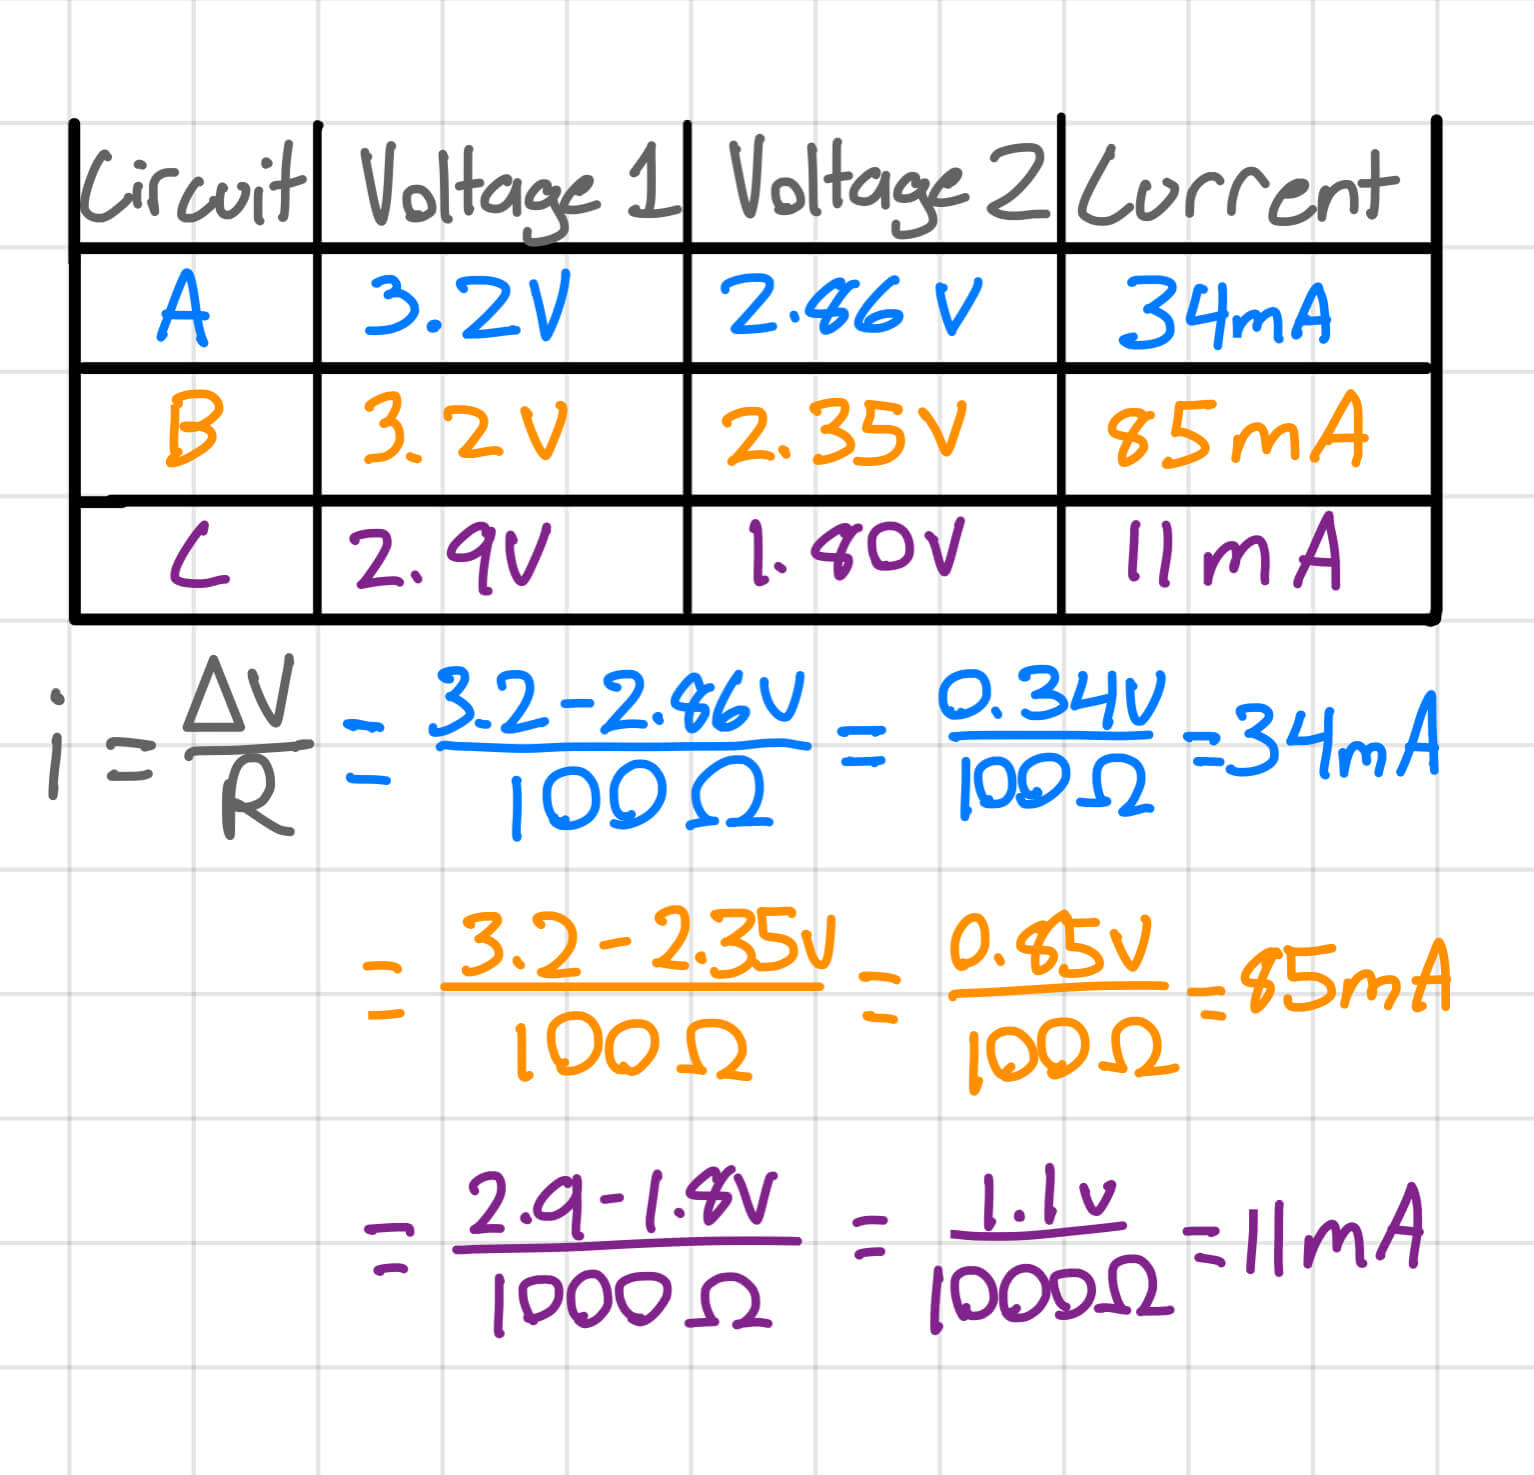 Circuit Voltage 1 Voltage 2 Current
A 3.2V 2.86V 34mA
B 3.2V 2.35V 85mA
C 2.9V 1.80V 11mA
i = ΔV/R = 3.2-2.86V/100Ω = 0.34V/100Ω = 34mA
= 3.2-2.35V/100Ω = 0.85V/100Ω = 85mA
= 2.9-1.8V/1000Ω = 1.1V/1000Ω = 11mA